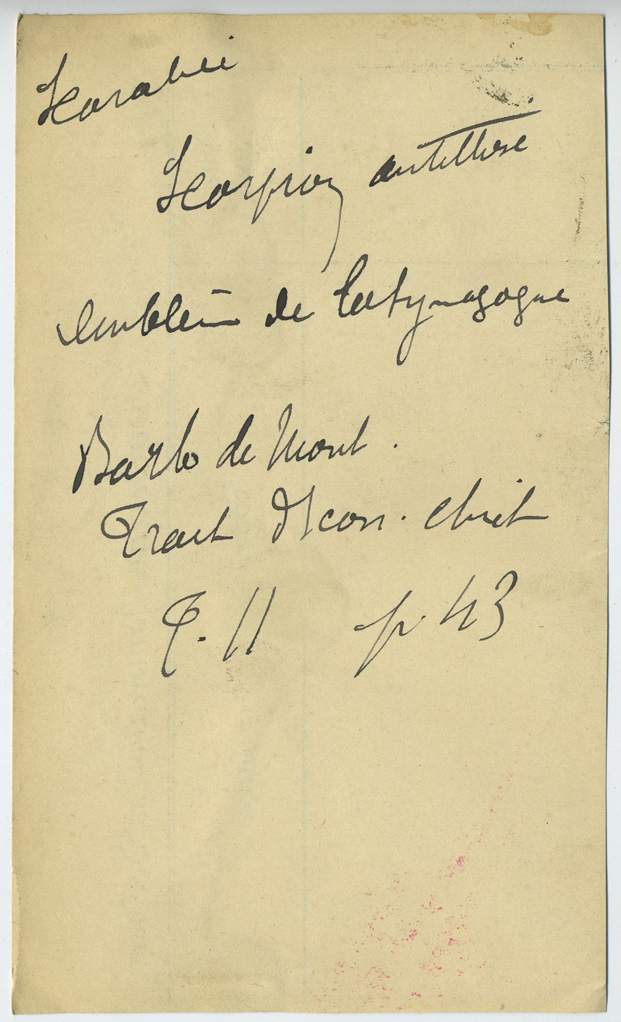 Scarabée
Scorpion antithèse
emblème de la synagogue
Barb de Mont.
Trait d'Icon. chrét
T. II p. 43